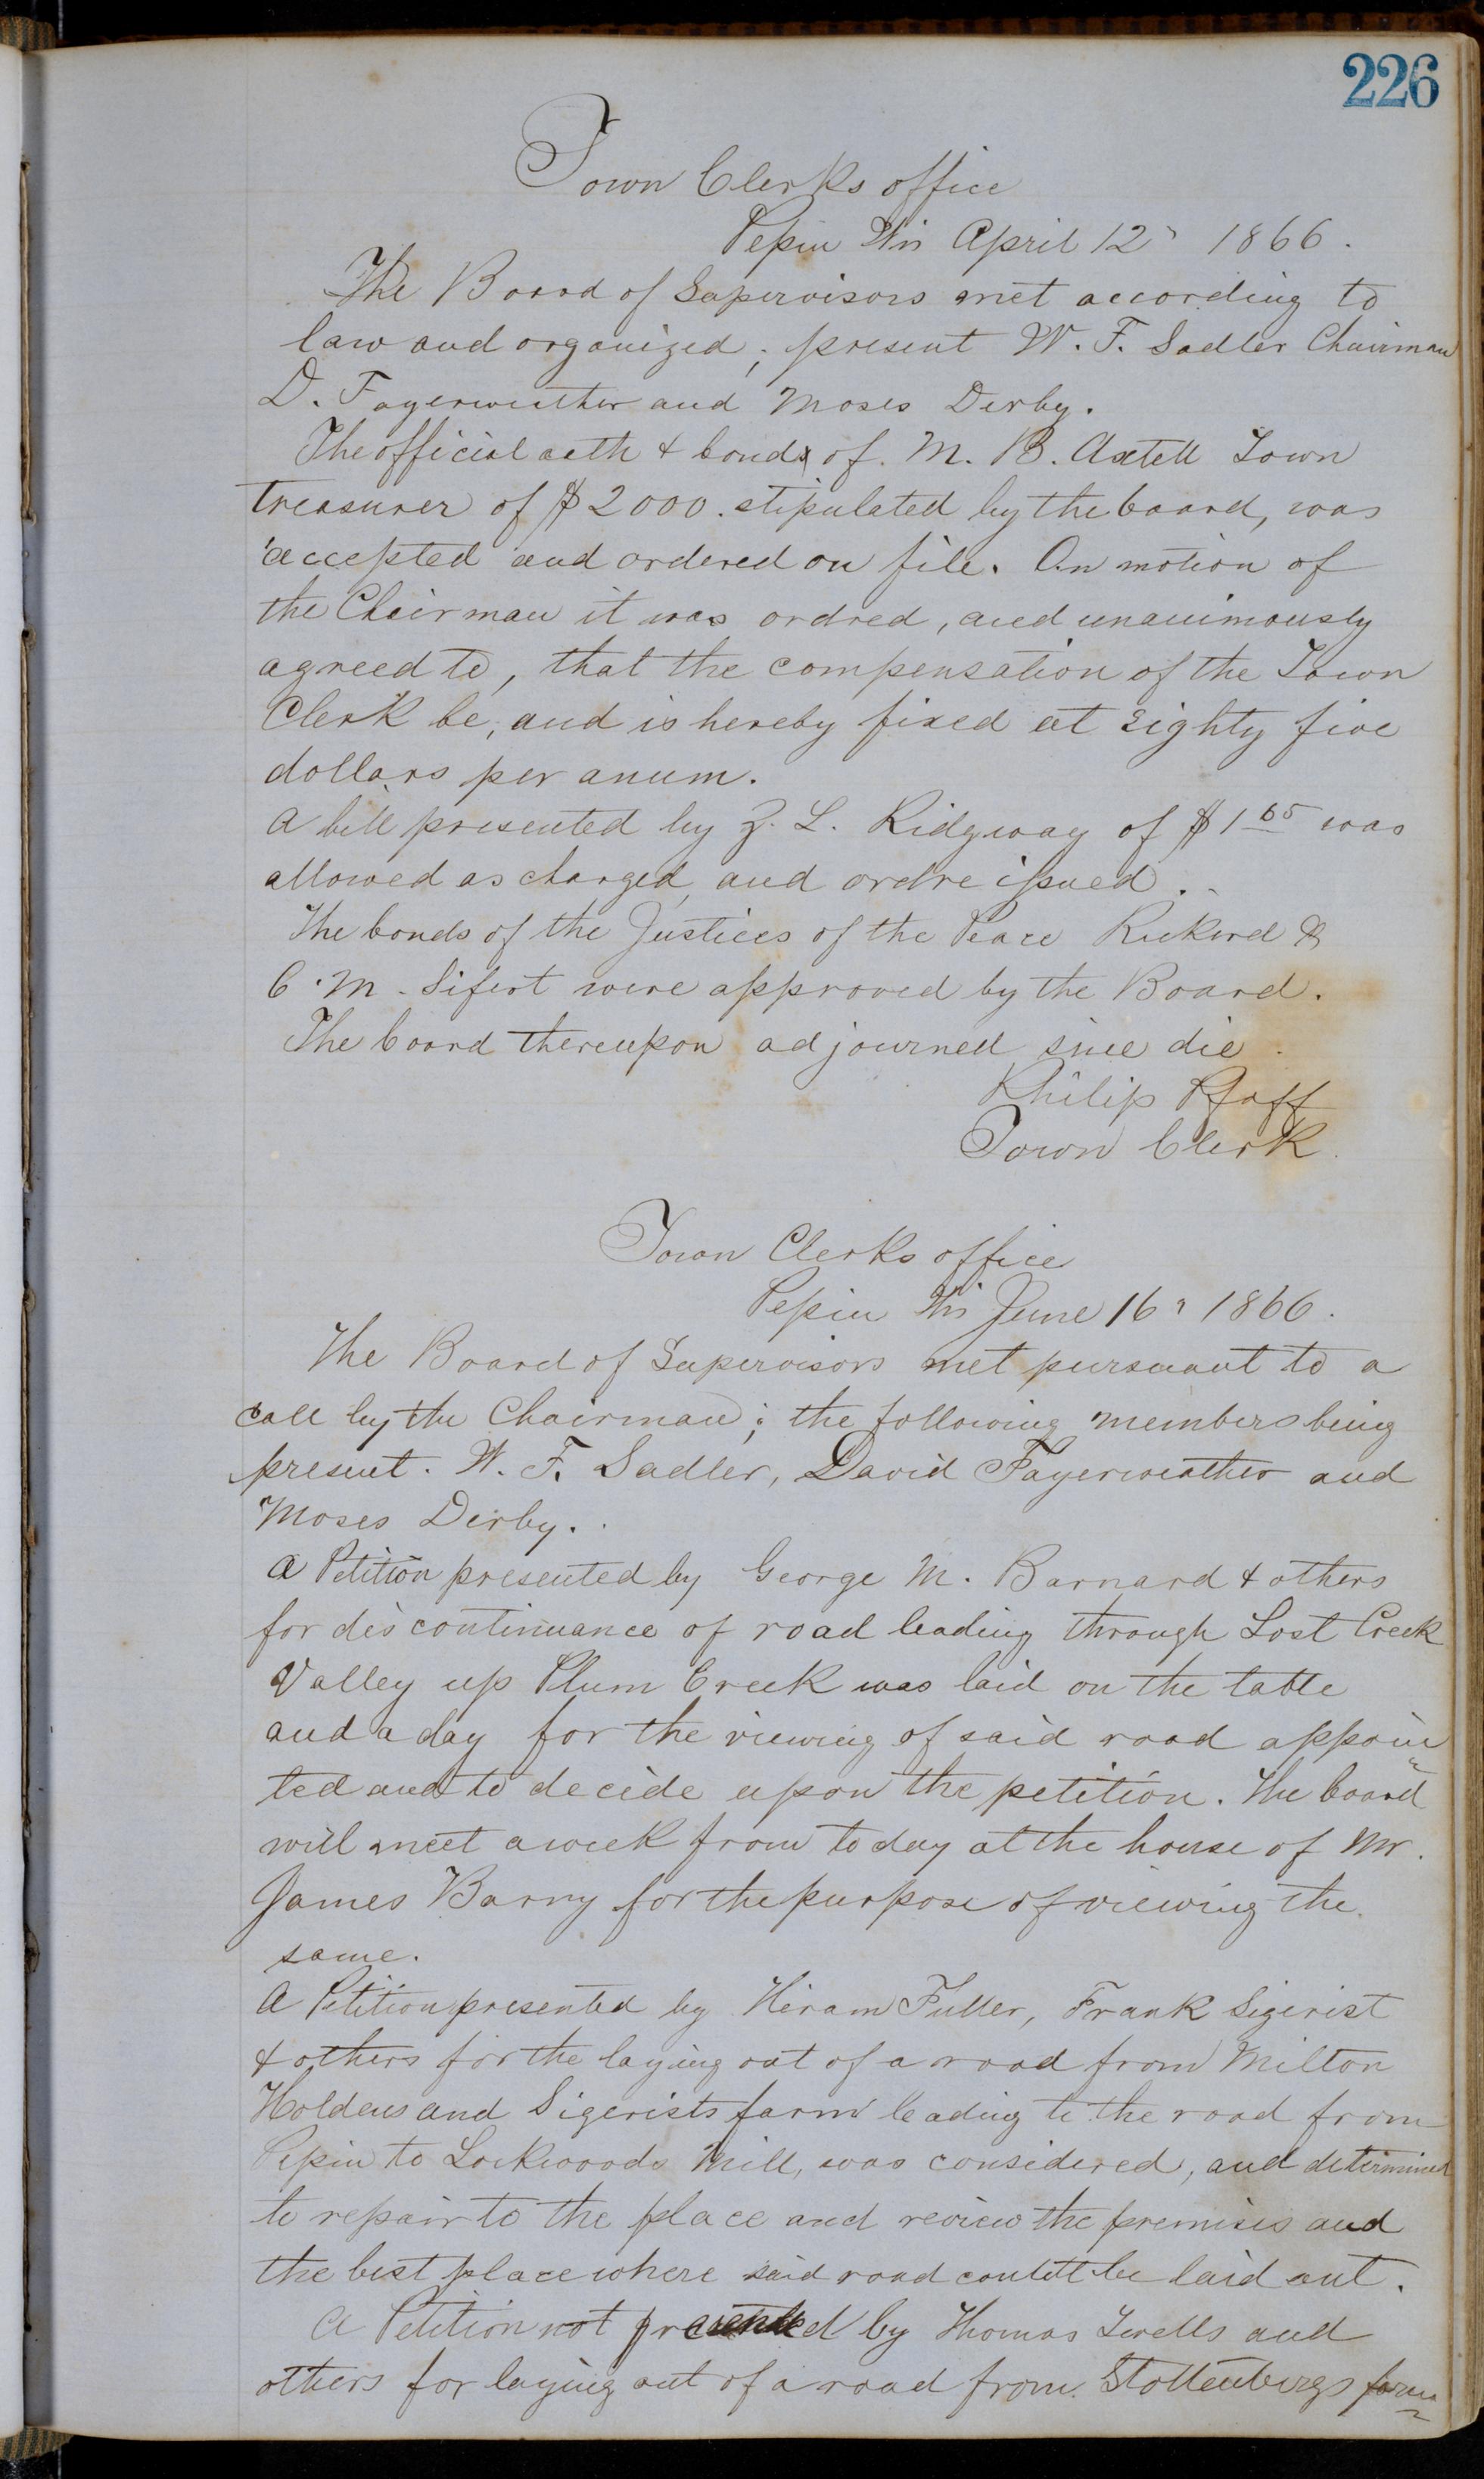 226
Town Clerks office
Pepin Win April 12" 1866.
The Board of Supervisors met according to
law and organized; present W. F. Sadler Chairman
D. Fayerweather and Moses Derby.
The official oath & bond of M. B. Axtell Town
treasurer of $2000. stipulated by the board, was
accepted and ordered on file. On motion of
the Chairman it was ordred, and unanimously
agreed to, that the compensation of the Town
Clerk be, and is hereby fixed at Eighty five
dollars per anum.
A bill presented by Z. L. Ridgway of $1 65 was
allowed as charged, and ordre issued.
The bonds of the Justices of the Peace Rickerd &
C. M. Sifert were approved by the Board.
The board thereupon adjourned sine die.
Philip Pfaff
Town Clerk.
Town Clerks office
Pepin Wis June 16" 1866.
The Board of Supervisors met pursuant to a
call by the Chairman; the following members being
present. W. F. Sadler, David Fayerweather and
Moses Derby.
A Petition presented by George M. Barnard & others
for discontinuance of road leading through Lost Creek
Valley up Plum Creek was laid on the table
and a day for the viewing of said road appoin
ted and to decide upon the petition. The board
will meet a week from to day at the house of Mr.
James Barry for the purpose of viewing the
same.
A Petition presented by Hiram Fuller, Frank Sigerist
& others for the laying out of a road from Milton
Holdens and Sigerists farm leading to the road from
Pepin to Lockwoods Mill, was considered, and determined
to repair to the place and review the premises and
the best place where said road could be laid out.
A Petition not presented by Thomas and
others for laying out of a road from Stoltenbergs farm